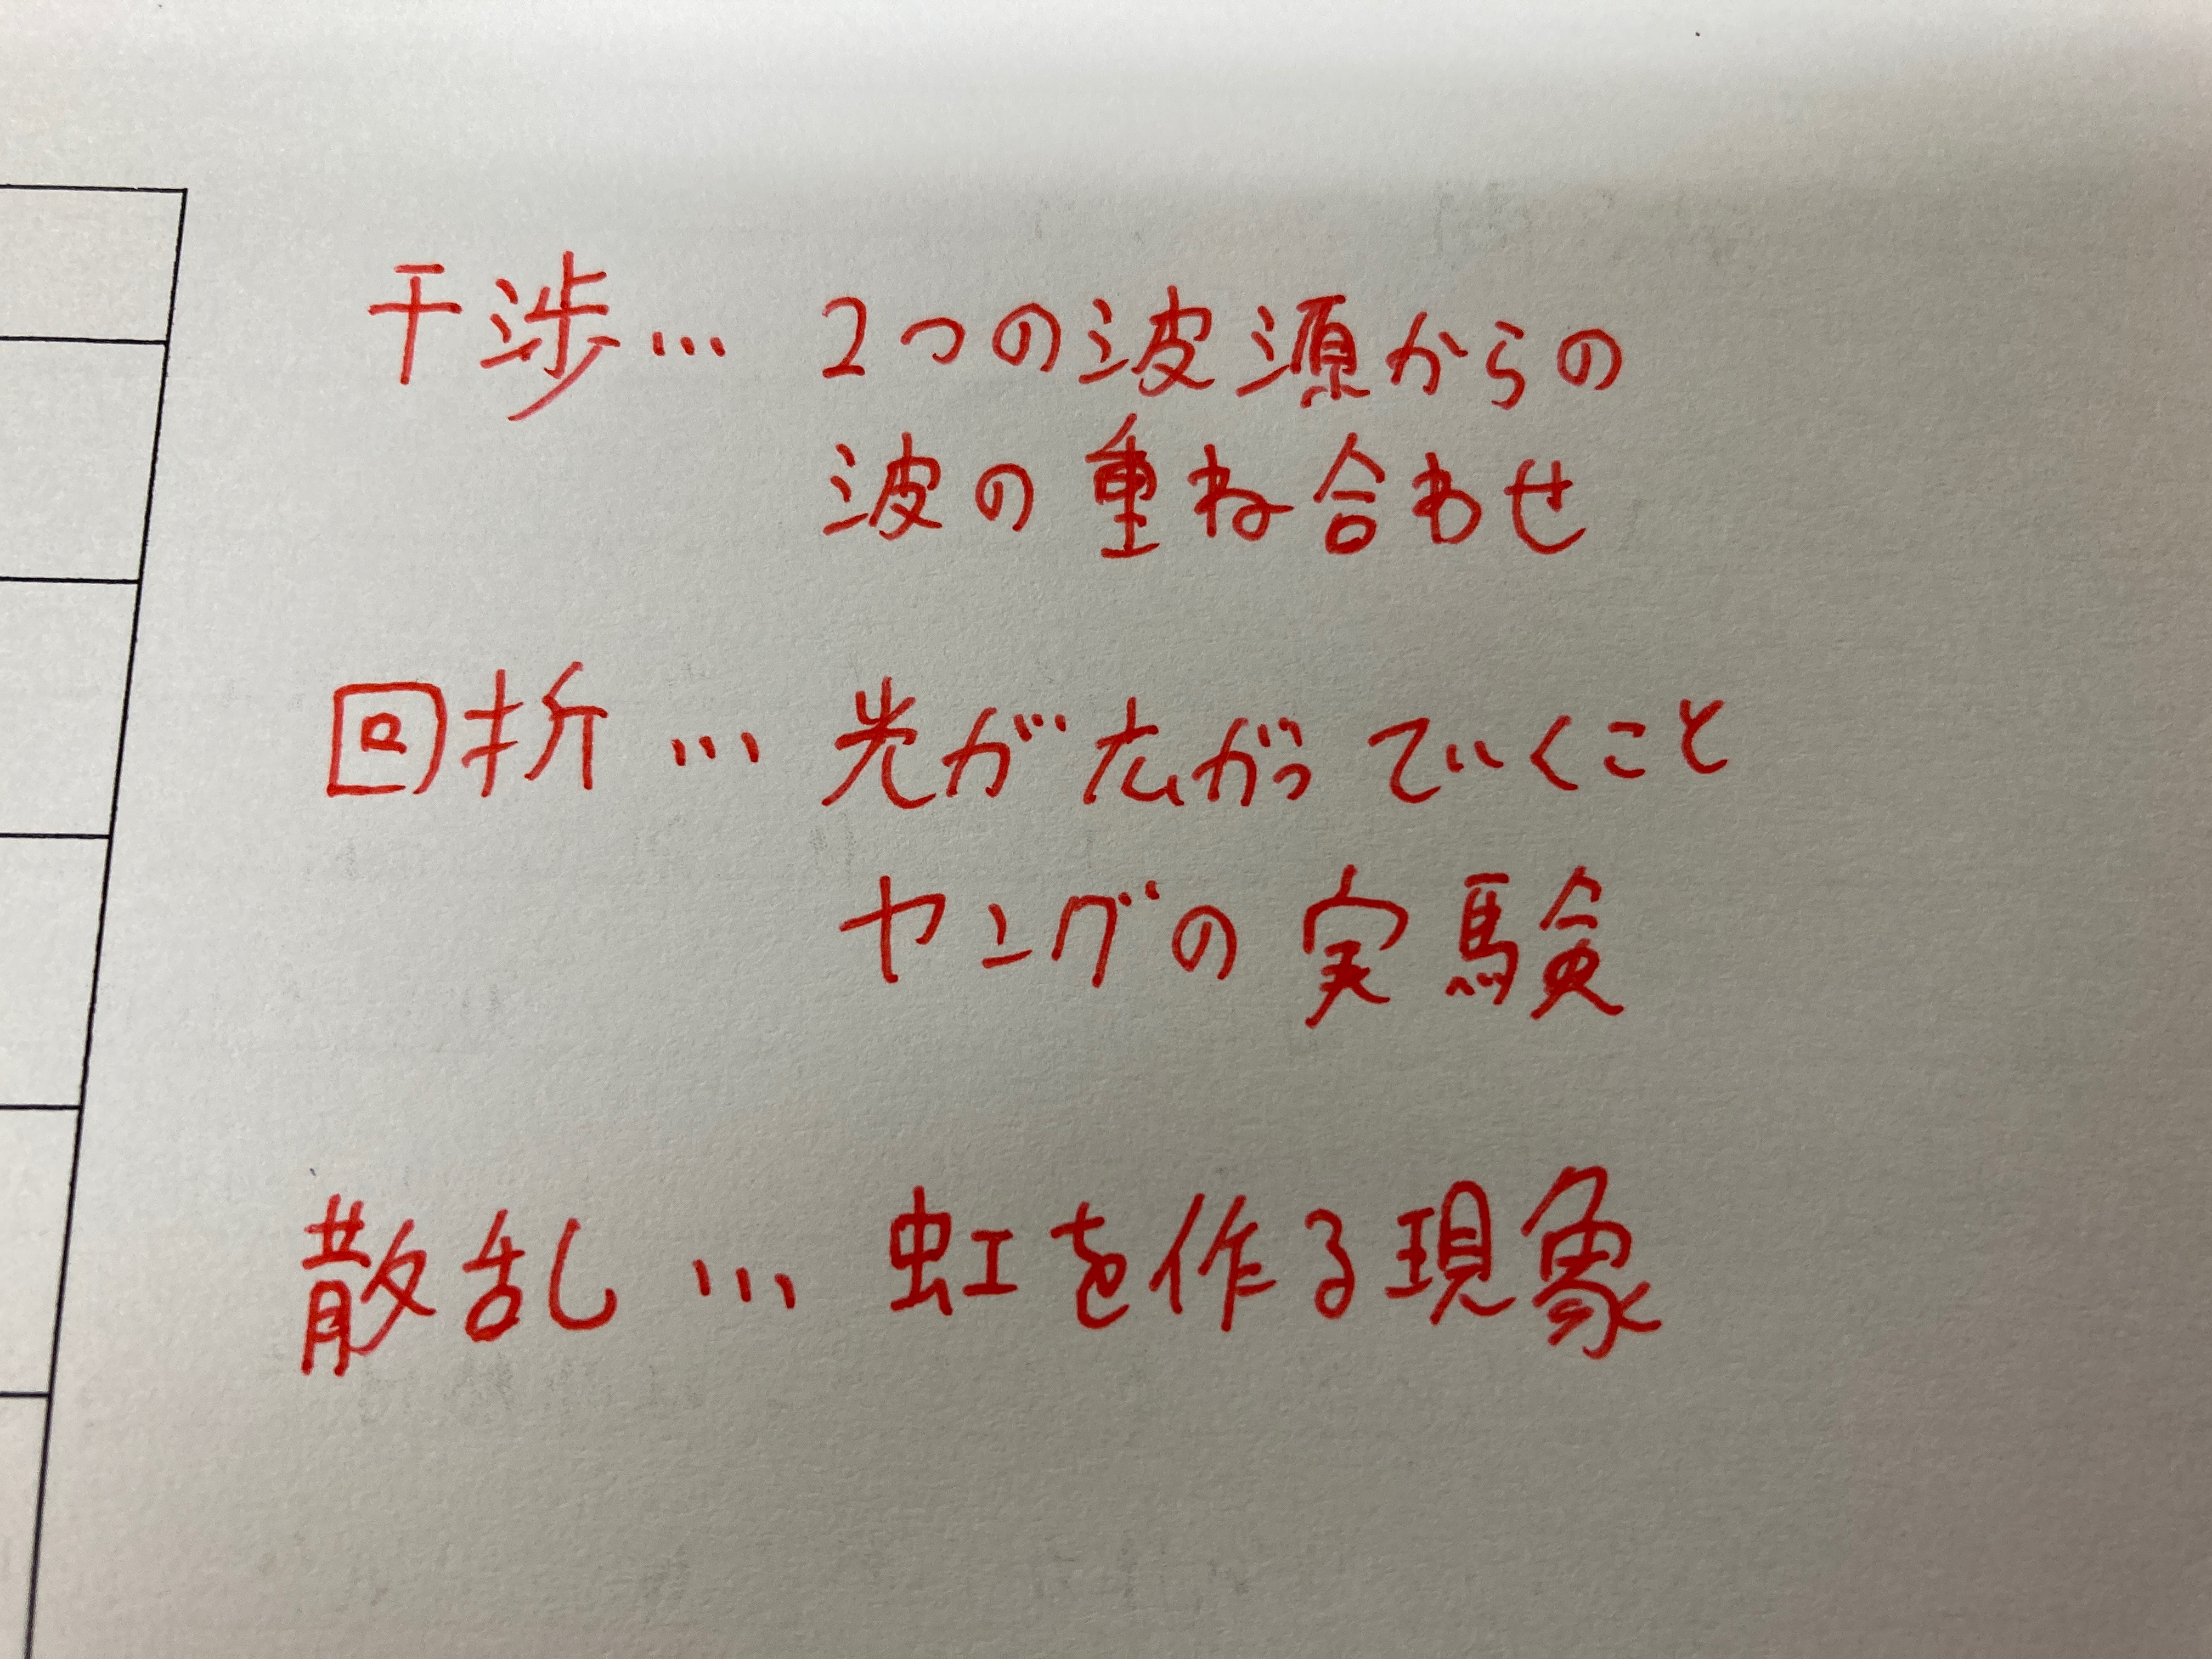 干渉… 2つの波源からの
波の重ね合わせ
回折… 光が広がっていくこと
ヤングの実験
散乱… 虹を作る現象